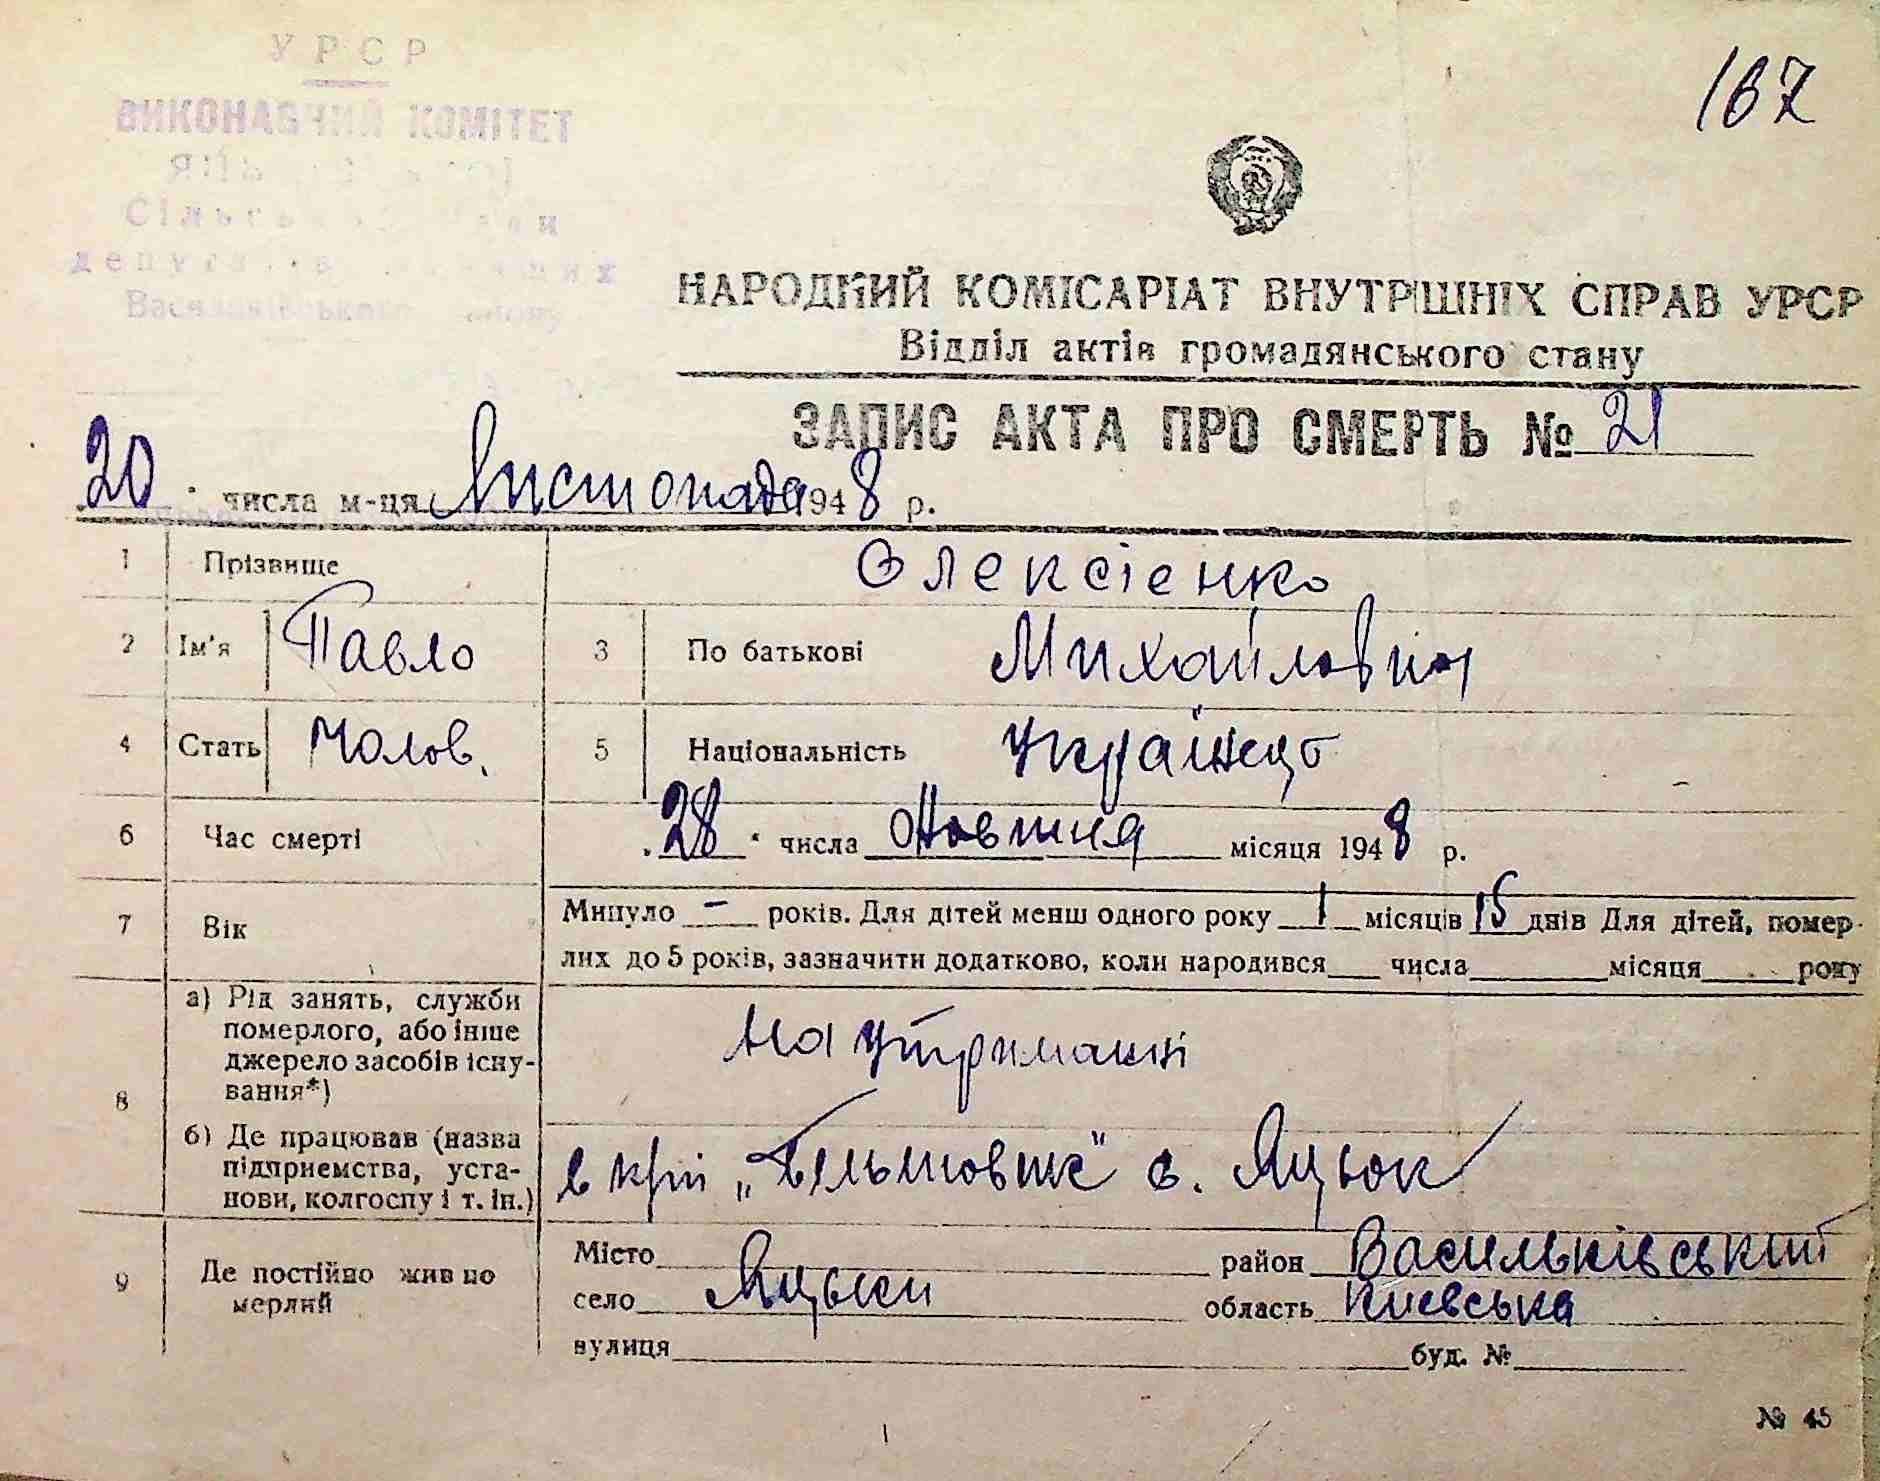 УРСР
167
ВИКОНАВЧИЙ КОМІТЕТ
НАРОДНИЙ КОМІСАРІАТ ВНУТРІШНІХ СПРАВ УРСР
Відділ актів громадянського стану
ЗАПИС АКТА ПРО СМЕРТЬ № 21
20 числа м-ця Листопада 1948 р.
1 Прізвище Олексієнко
2 Ім'я Павло 3 По батькові Михайлович
4 Стать Чолов. 5 Національність Українець
6 Час смерті 28 числа Жовтня місяця 1948 р.
7 Вік Минуло - років. Для дітей менш одного року 1 місяців 15 днів Для дітей, помер-
лих до 5 років, зазначити додатково, коли народився числа місяця року
8 а) Рід занять, служби
померлого, або інше
джерело засобів існу-
вання*)
на утриманні
б) Де працював (назва
підприємства, уста-
нови, колгоспу і т. ін.)
в с. Яцьок
9 Де постійно жив по
мерлий
Місто район Васильківський
село Яцьки область Київська
вулиця буд. №
№ 45